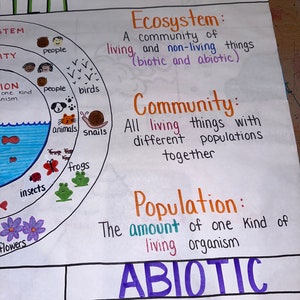 Ecosystem:
A community of
living and non-living things
(biotic and abiotic)
Community:
All living things with
different populations
together
Population:
The amount of one kind of
living organism
ABIOTIC
STEM
people
ITY
people
birds
ION
one kind
anism
animals
snails
frogs
insects
flowers